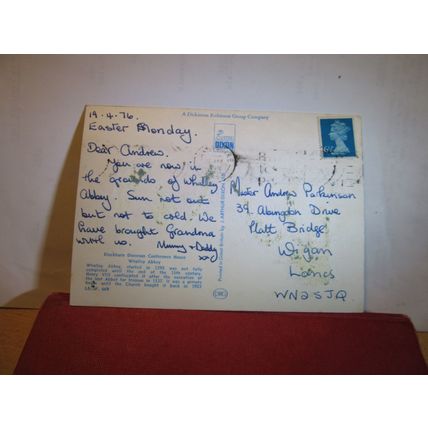 A Dickinson Robinson Group Company
19.4.76.
Easter Monday.
Dear Andrew.
You are now in
the grounds of Whalley
Abbey. Sun not out
but not to cold. We
have brought Grandma
with us. Mummy + Daddy
xxx
Blackburn Diocesan Conference House
Whalley Abbey
Whalley Abbey, started in 1296 was not fully
completed until the end of the 15th century.
Henry VIII confiscated it after the execution of
the last Abbot for treason in 1537. It was a private
house until the Church bought it back in 1923
DIXON
Printed in Great Britain by J. ARTHUR DIXON
DRG
Master Andrew Parkinson
39, Abingdon Drive
Platt Bridge
Wigan
Lancs
WN2 5JQ